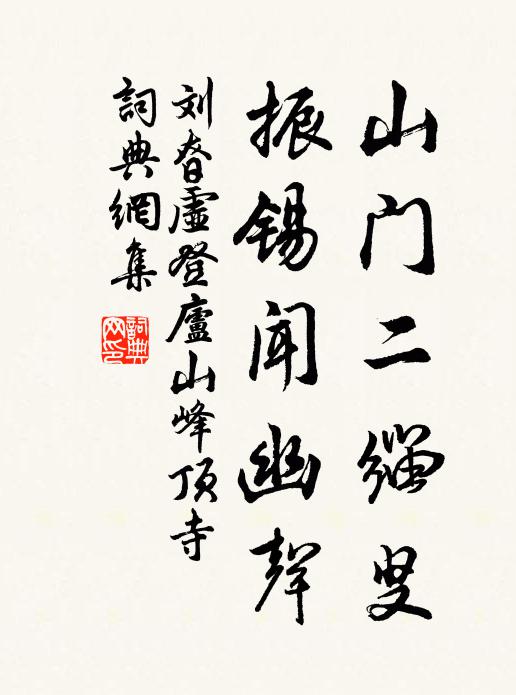 山门二缁叟
振锡闻幽聲
刘眘虚登廬山峰顶寺
詞典網集
詞典网印